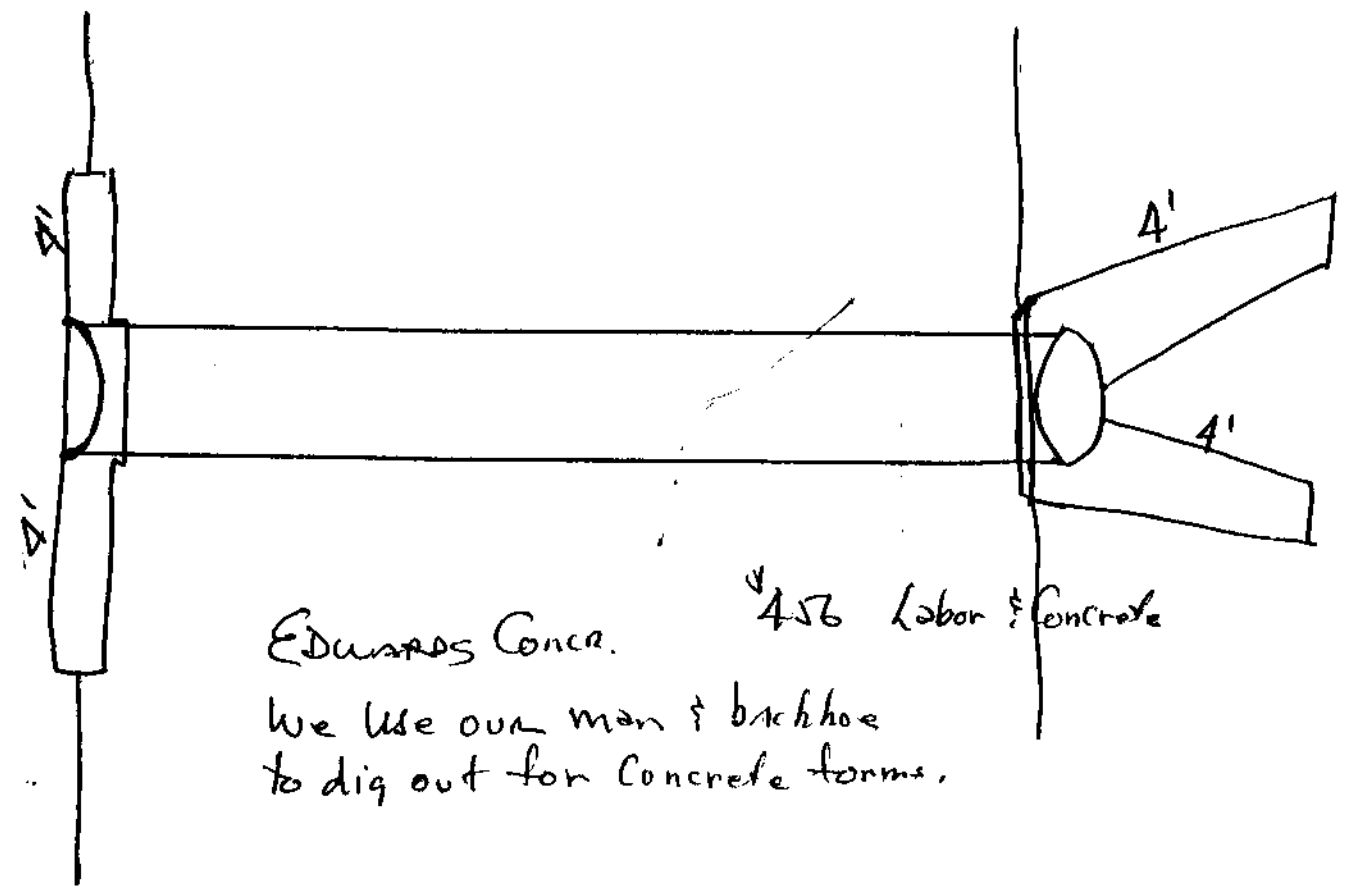 4'
4'
4'
4'
$456 Labor & Concrete
EDWARDS CONCR.
We Use our man & backhoe
to dig out for Concrete forms.